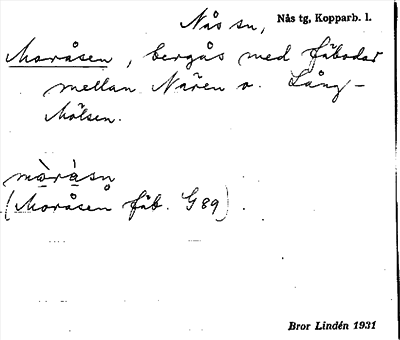 Nås sn, Nås tg, Kopparb. l.
Moråsen, bergås med fäbodar
mellan Nären o. Lång-
Mälsen.
mòràsn
(Moråsen fäb. G 89).
Bror Lindén 1931